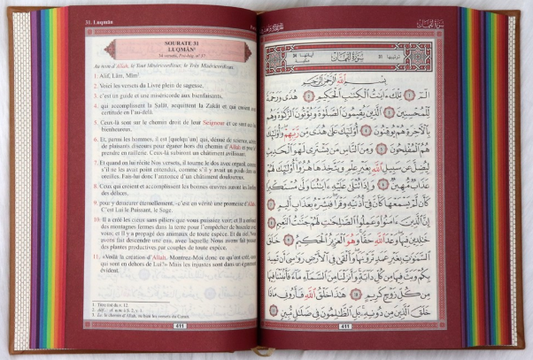 31. Luqmân
SOURATE 31
LUQMÂN
Au nom d'Allah, le Tout Miséricordieux, le Très Miséricordieux
1. Alif, Lâm, Mîm
2. Voici les versets du Livre plein de sagesse,
3. c'est un guide et une miséricorde aux bienfaisants,
4. qui accomplissent la Salât, acquittent la Zakât et qui
certitude en l'au-delà.
5. Ceux-là sont sur le chemin droit de leur Seigneur et
bienheureux.
6. Et, parmi les hommes, il est [quelqu'un] qui, dénué de science,
de plaisants discours pour égarer hors du chemin d'Allah et
prendre en raillerie. Ceux-là subiront un châtiment avilissant.
7. Et quand on lui récite Nos versets, il tourne le dos avec orgueil,
s'il ne les avait point entendus, comme s'il y avait un poids dans
oreilles. Fais-lui donc l'annonce d'un châtiment douloureux.
8. Ceux qui croient et accomplissent les bonnes œuvres auront les
des délices,
9. pour y demeurer éternellement, - c'est en vérité une promesse d'Allah
C'est Lui le Puissant, le Sage.
10. Il a créé les cieux sans piliers que vous puissiez voir; et Il a
des montagnes fermes dans la terre pour l'empêcher de basculer
vous; et Il y a propagé des animaux de toute espèce. Et du ciel, Nous
avons fait descendre une eau, avec laquelle Nous avons fait pousser
des plantes productives par couples de toute espèce.
11. «Voilà la création d'Allah. Montrez-Moi donc ce qu'ont créé
qui sont en dehors de Lui?» Mais les injustes sont dans un égarement
évident.
411
سورة لقمان
بسم الله الرحمن الرحيم
الٓمٓ ١ تِلْكَ ءَايَٰتُ ٱلْكِتَٰبِ ٱلْحَكِيمِ ٢ هُدًى وَرَحْمَةً
لِّلْمُحْسِنِينَ ٣ ٱلَّذِينَ يُقِيمُونَ ٱلصَّلَوٰةَ وَيُؤْتُونَ ٱلزَّكَوٰةَ وَهُم
بِٱلْءَاخِرَةِ هُمْ يُوقِنُونَ ٤ أُو۟لَٰٓئِكَ عَلَىٰ هُدًى مِّن رَّبِّهِمْ وَأُو۟لَٰٓئِكَ
هُمُ ٱلْمُفْلِحُونَ ٥ وَمِنَ ٱلنَّاسِ مَن يَشْتَرِى لَهْوَ ٱلْحَدِيثِ
لِيُضِلَّ عَن سَبِيلِ ٱللَّهِ بِغَيْرِ عِلْمٍ وَيَتَّخِذَهَا هُزُوًا أُو۟لَٰٓئِكَ لَهُمْ
عَذَابٌ مُّهِينٌ ٦ وَإِذَا تُتْلَىٰ عَلَيْهِ ءَايَٰتُنَا وَلَّىٰ مُسْتَكْبِرًا
كَأَن لَّمْ يَسْمَعْهَا كَأَنَّ فِىٓ أُذُنَيْهِ وَقْرًا فَبَشِّرْهُ بِعَذَابٍ أَلِيمٍ ٧
إِنَّ ٱلَّذِينَ ءَامَنُوا۟ وَعَمِلُوا۟ ٱلصَّٰلِحَٰتِ لَهُمْ جَنَّٰتُ ٱلنَّعِيمِ ٨
خَٰلِدِينَ فِيهَا وَعْدَ ٱللَّهِ حَقًّا وَهُوَ ٱلْعَزِيزُ ٱلْحَكِيمُ ٩ خَلَقَ
ٱلسَّمَٰوَٰتِ بِغَيْرِ عَمَدٍ تَرَوْنَهَا وَأَلْقَىٰ فِى ٱلْأَرْضِ رَوَٰسِىَ أَن تَمِيدَ
بِكُمْ وَبَثَّ فِيهَا مِن كُلِّ دَآبَّةٍ وَأَنزَلْنَا مِنَ ٱلسَّمَآءِ مَآءً فَأَنۢبَتْنَا فِيهَا
مِن كُلِّ زَوْجٍ كَرِيمٍ ١٠ هَٰذَا خَلْقُ ٱللَّهِ فَأَرُونِى مَاذَا
خَلَقَ ٱلَّذِينَ مِن دُونِهِۦ بَلِ ٱلظَّٰلِمُونَ فِى ضَلَٰلٍ مُّبِينٍ ١١
411